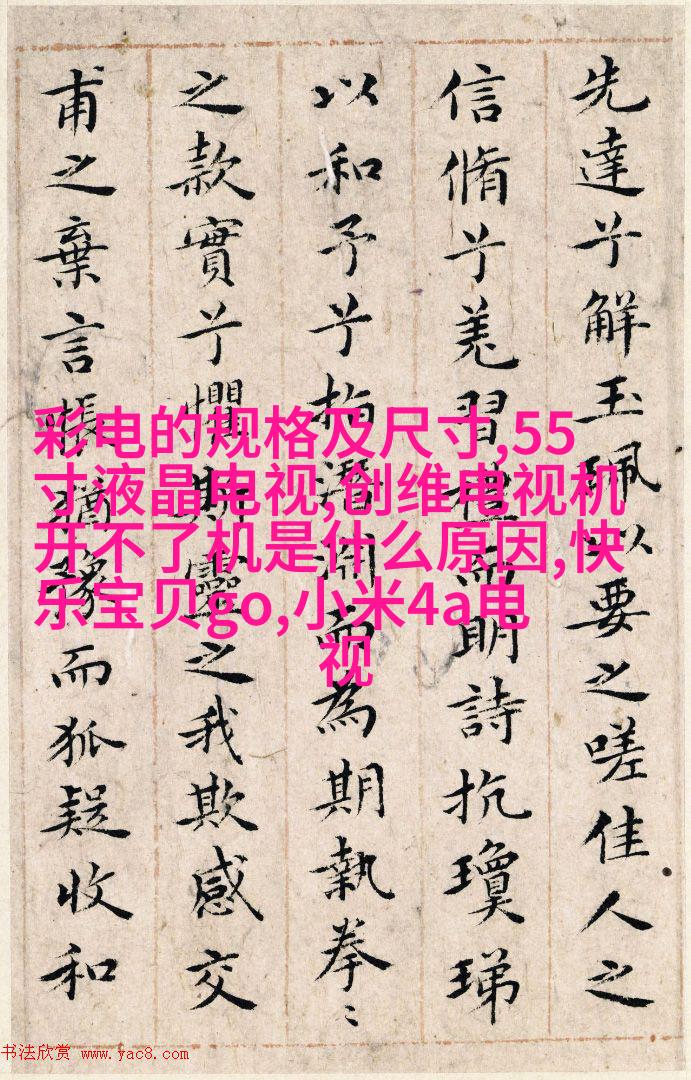 先達兮解玉珮以要之嗟佳人之
信脩兮羌習禮而明詩抗瓊珶
以和予兮指潛淵而為期執拳〻
之款實兮懼斯靈之我欺感交
甫之棄言悵猶豫而狐疑收和
彩电的规格及尺寸,55
寸液晶电视,创维电视机
开不了机是什么原因,快
乐宝贝go,小米4a电
视
书法欣赏 www.yac8.com